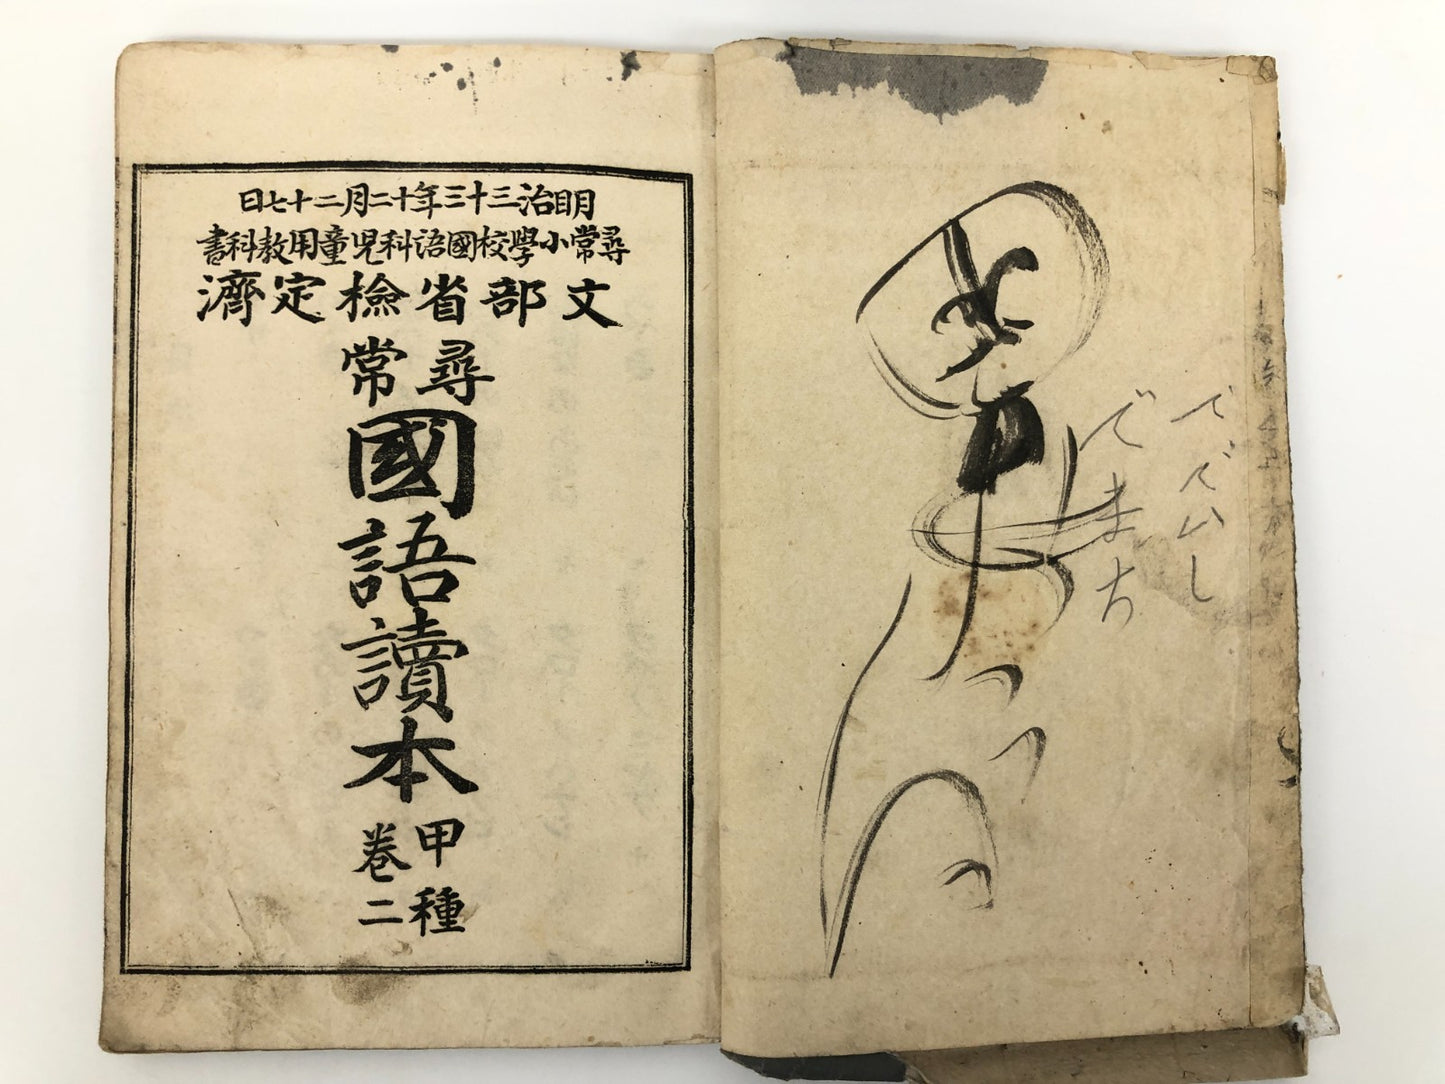 明治三十三年十二月二十七日
尋常小學校國語科兒童用教科書
文部省檢定濟
尋常
國語讀本
甲種
卷二
でまち